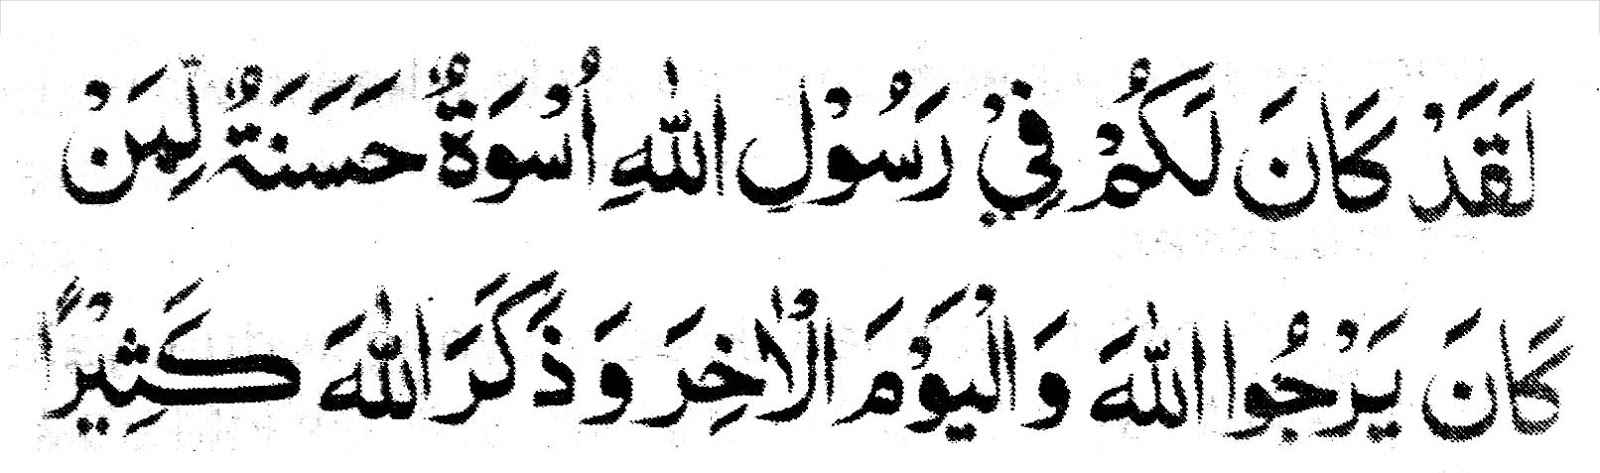 لَقَدْ كَانَ لَكُمْ فِيْ رَسُوْلِ اللهِ اُسْوَةٌ حَسَنَةٌ لِّمَنْ
كَانَ يَرْجُوا اللهَ وَالْيَوْمَ الْاٰخِرَ وَ ذَكَرَ اللهَ كَثِيْرًا